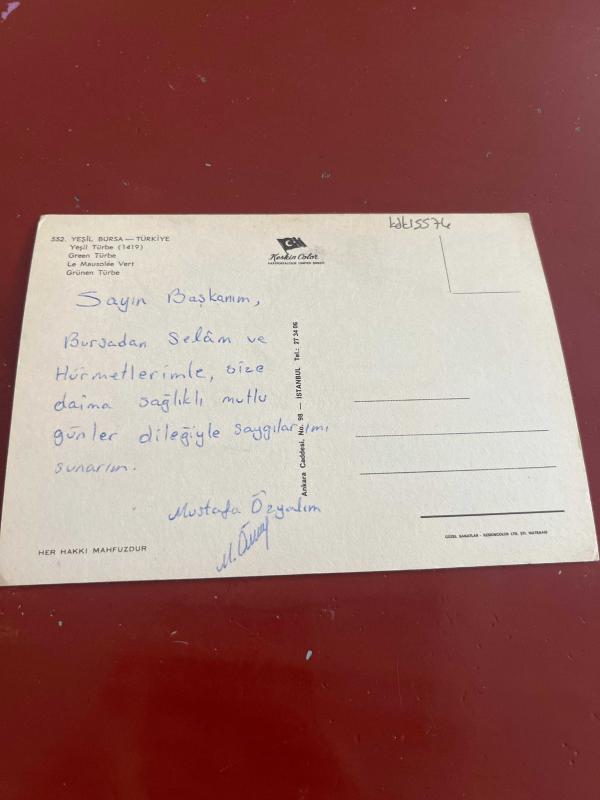 kdk15576
552. YEŞİL BURSA — TÜRKİYE
Yeşil Türbe (1419)
Green Türbe
Le Mausolée Vert
Grünen Türbe
Keskin Color
Sayın Başkanım,
Bursadan Selâm ve
Hürmetlerimle, size
daima sağlıklı mutlu
günler dileğiyle saygılarımı
sunarım.
Mustafa Özyalım
HER HAKKI MAHFUZDUR
Ankara Caddesi, No. 98 — İSTANBUL Tel.: 27 34 06
GÜZEL SANATLAR - KESKİNCOLOR LTD. ŞTİ. MATBAASI